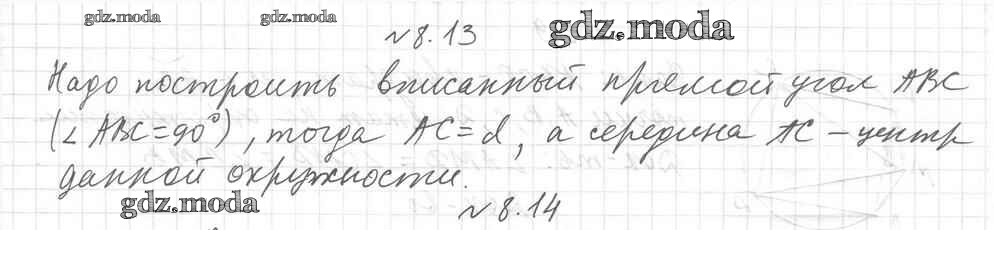 gdz.moda gdz.moda gdz.moda
№8.13
Надо построить вписанный прямой угол ABC
(∠ABC=90°), тогда AC=d, а середина AC – центр
данной окружности.
gdz.moda
№8.14